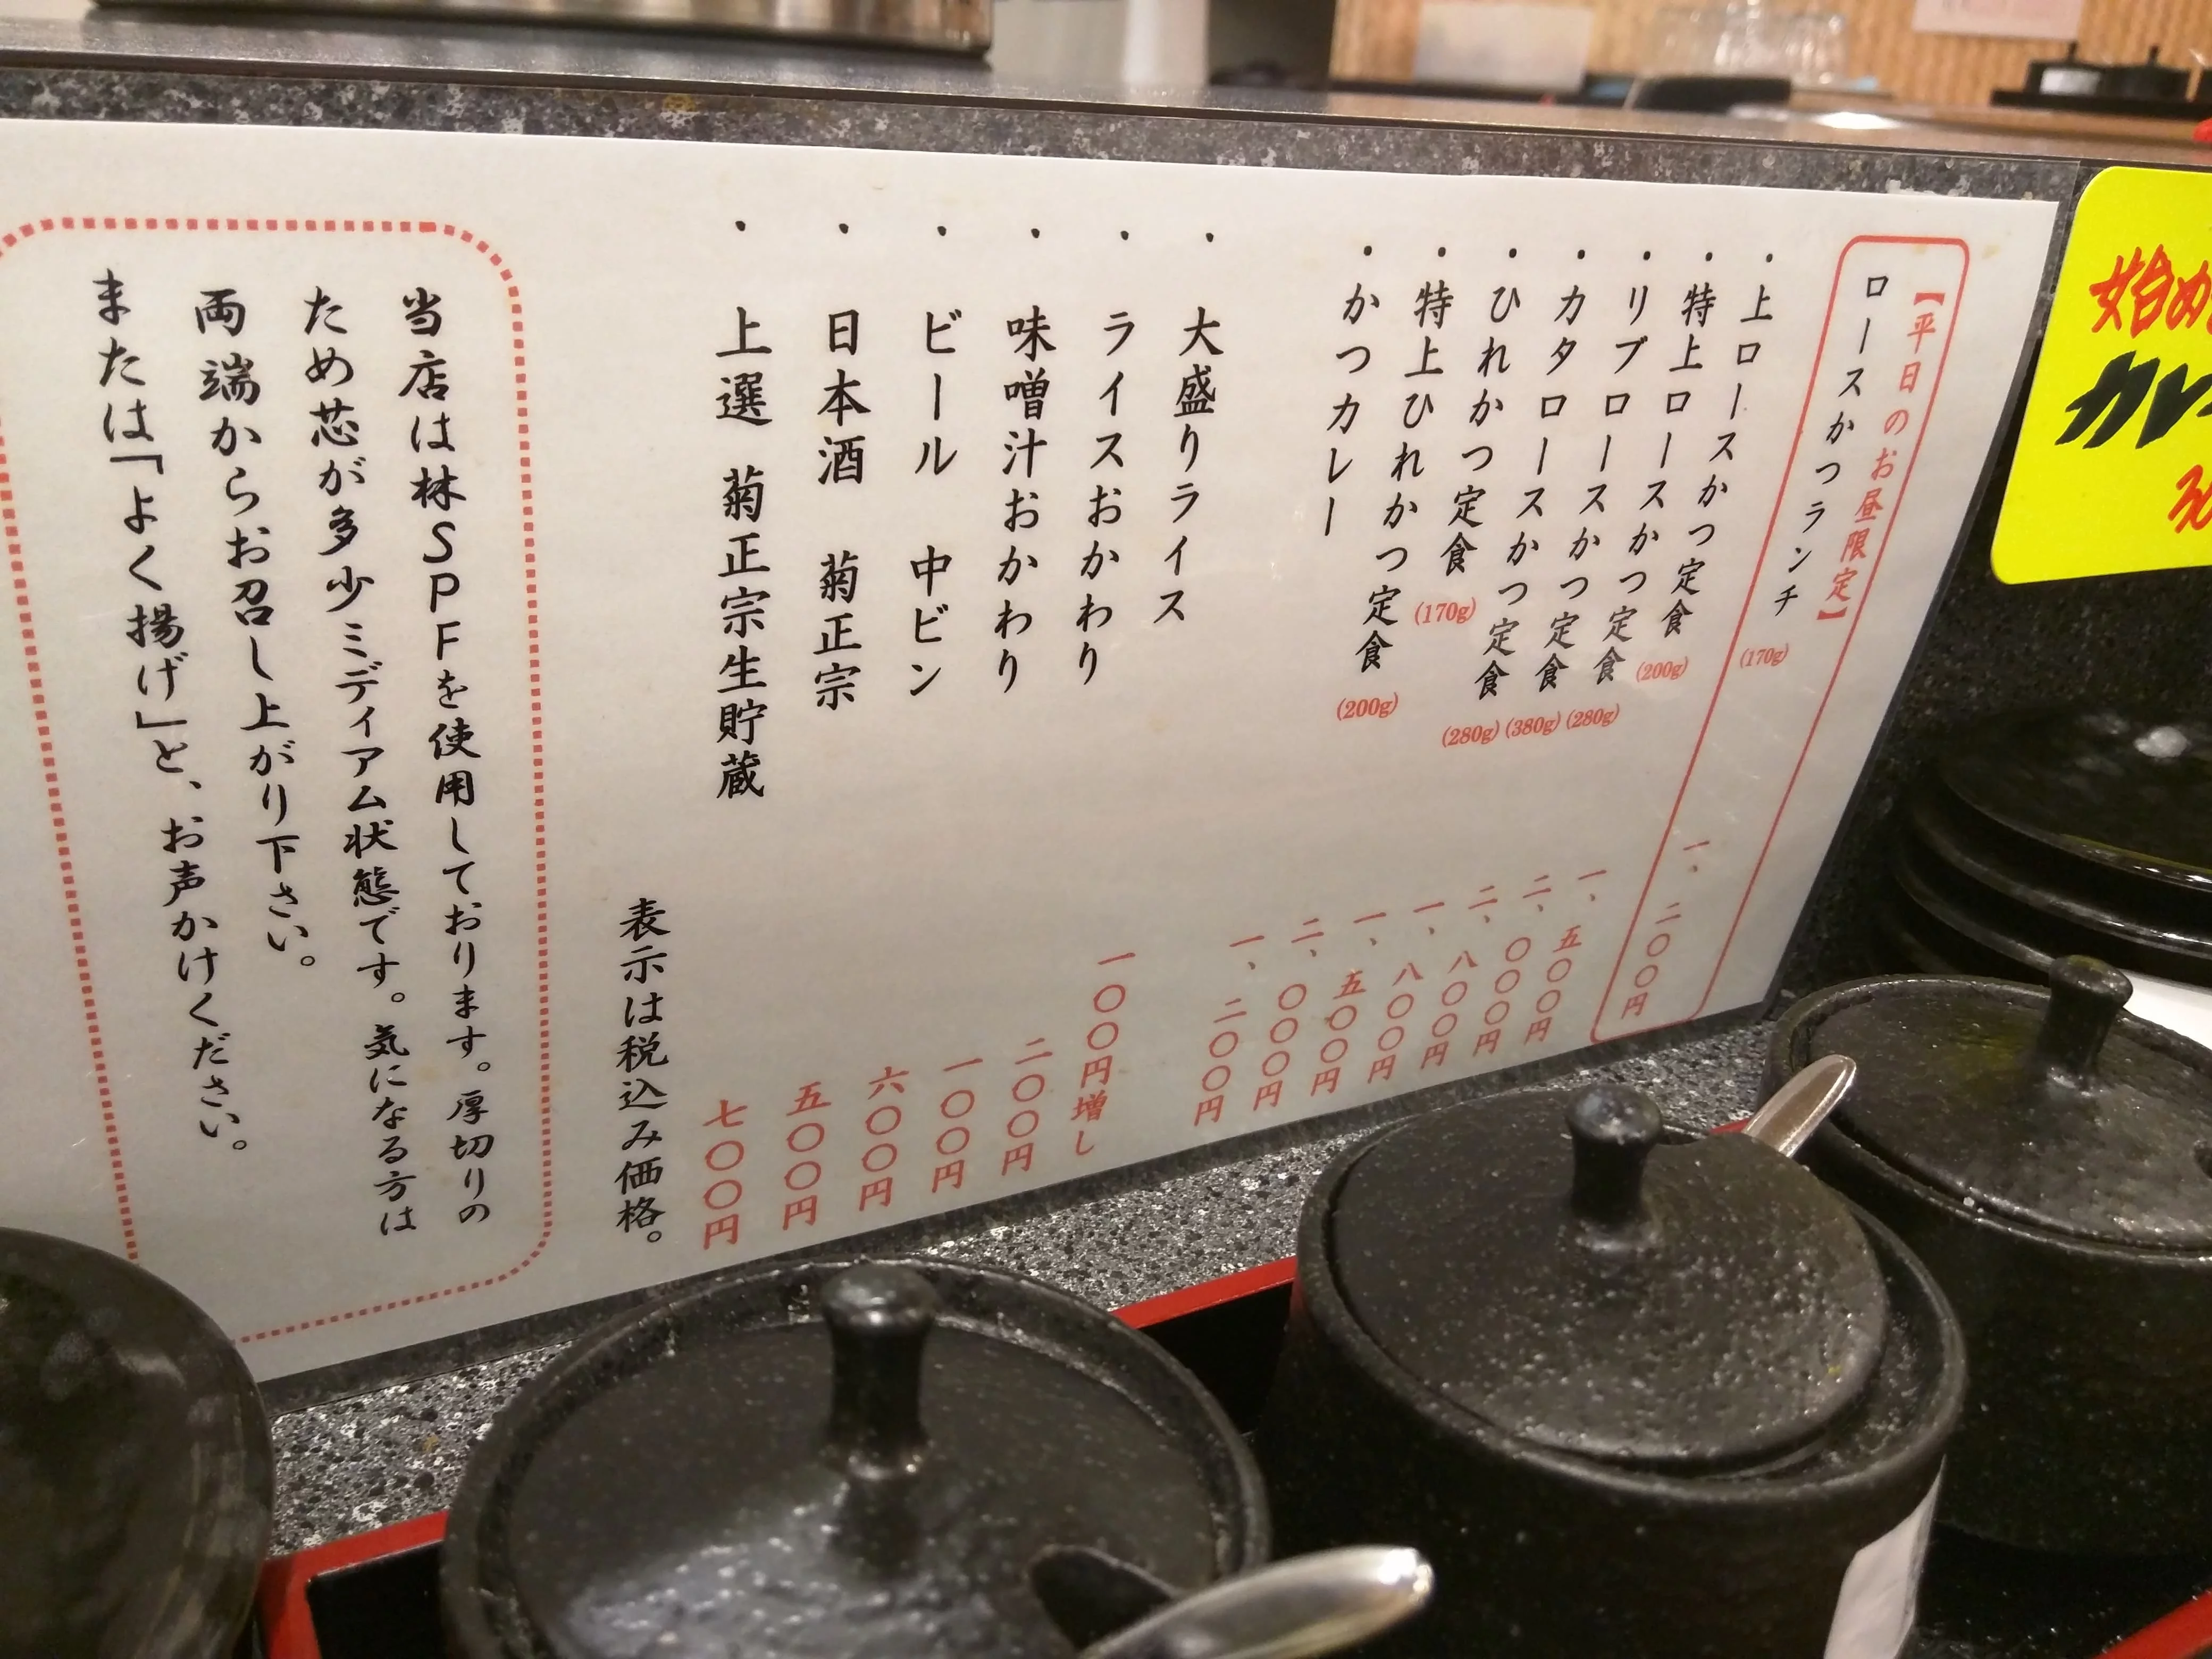 始め
カレ
【平日のお昼限定】
ロースかつランチ (170g) 一、二〇〇円
・上ロースかつ定食 (200g) 一、五〇〇円
・特上ロースかつ定食 (280g) 二、〇〇〇円
・リブロースかつ定食 (380g) 二、八〇〇円
・カタロースかつ定食 (280g) 一、八〇〇円
・ひれかつ定食 (170g) 一、五〇〇円
・特上ひれかつ定食 (200g) 二、〇〇〇円
・かつカレー 一、二〇〇円
・大盛りライス 一〇〇円増し
・ライスおかわり 二〇〇円
・味噌汁おかわり 一〇〇円
・ビール 中ビン 六〇〇円
・日本酒 菊正宗 五〇〇円
・上選 菊正宗生貯蔵 七〇〇円
表示は税込み価格。
当店は林SPFを使用しております。厚切りの
ため芯が多少ミディアム状態です。気になる方は
両端からお召し上がり下さい。
または「よく揚げ」と、お声かけください。